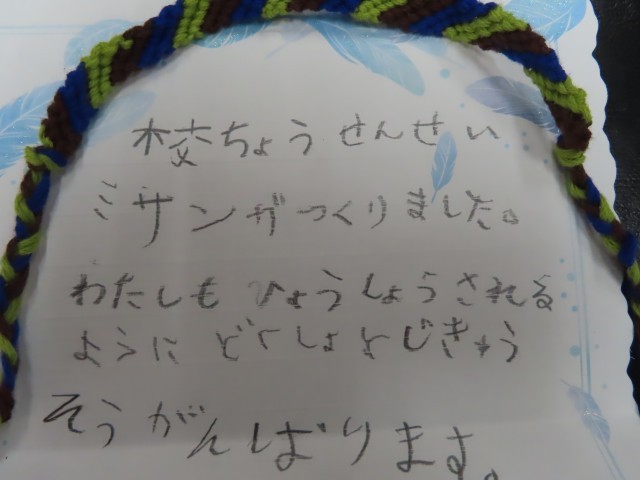 校ちょうせんせい
ミサンガつくりました。
わたしもひょうしょうされる
ようにどくしょとじきゅう
そうがんばります。